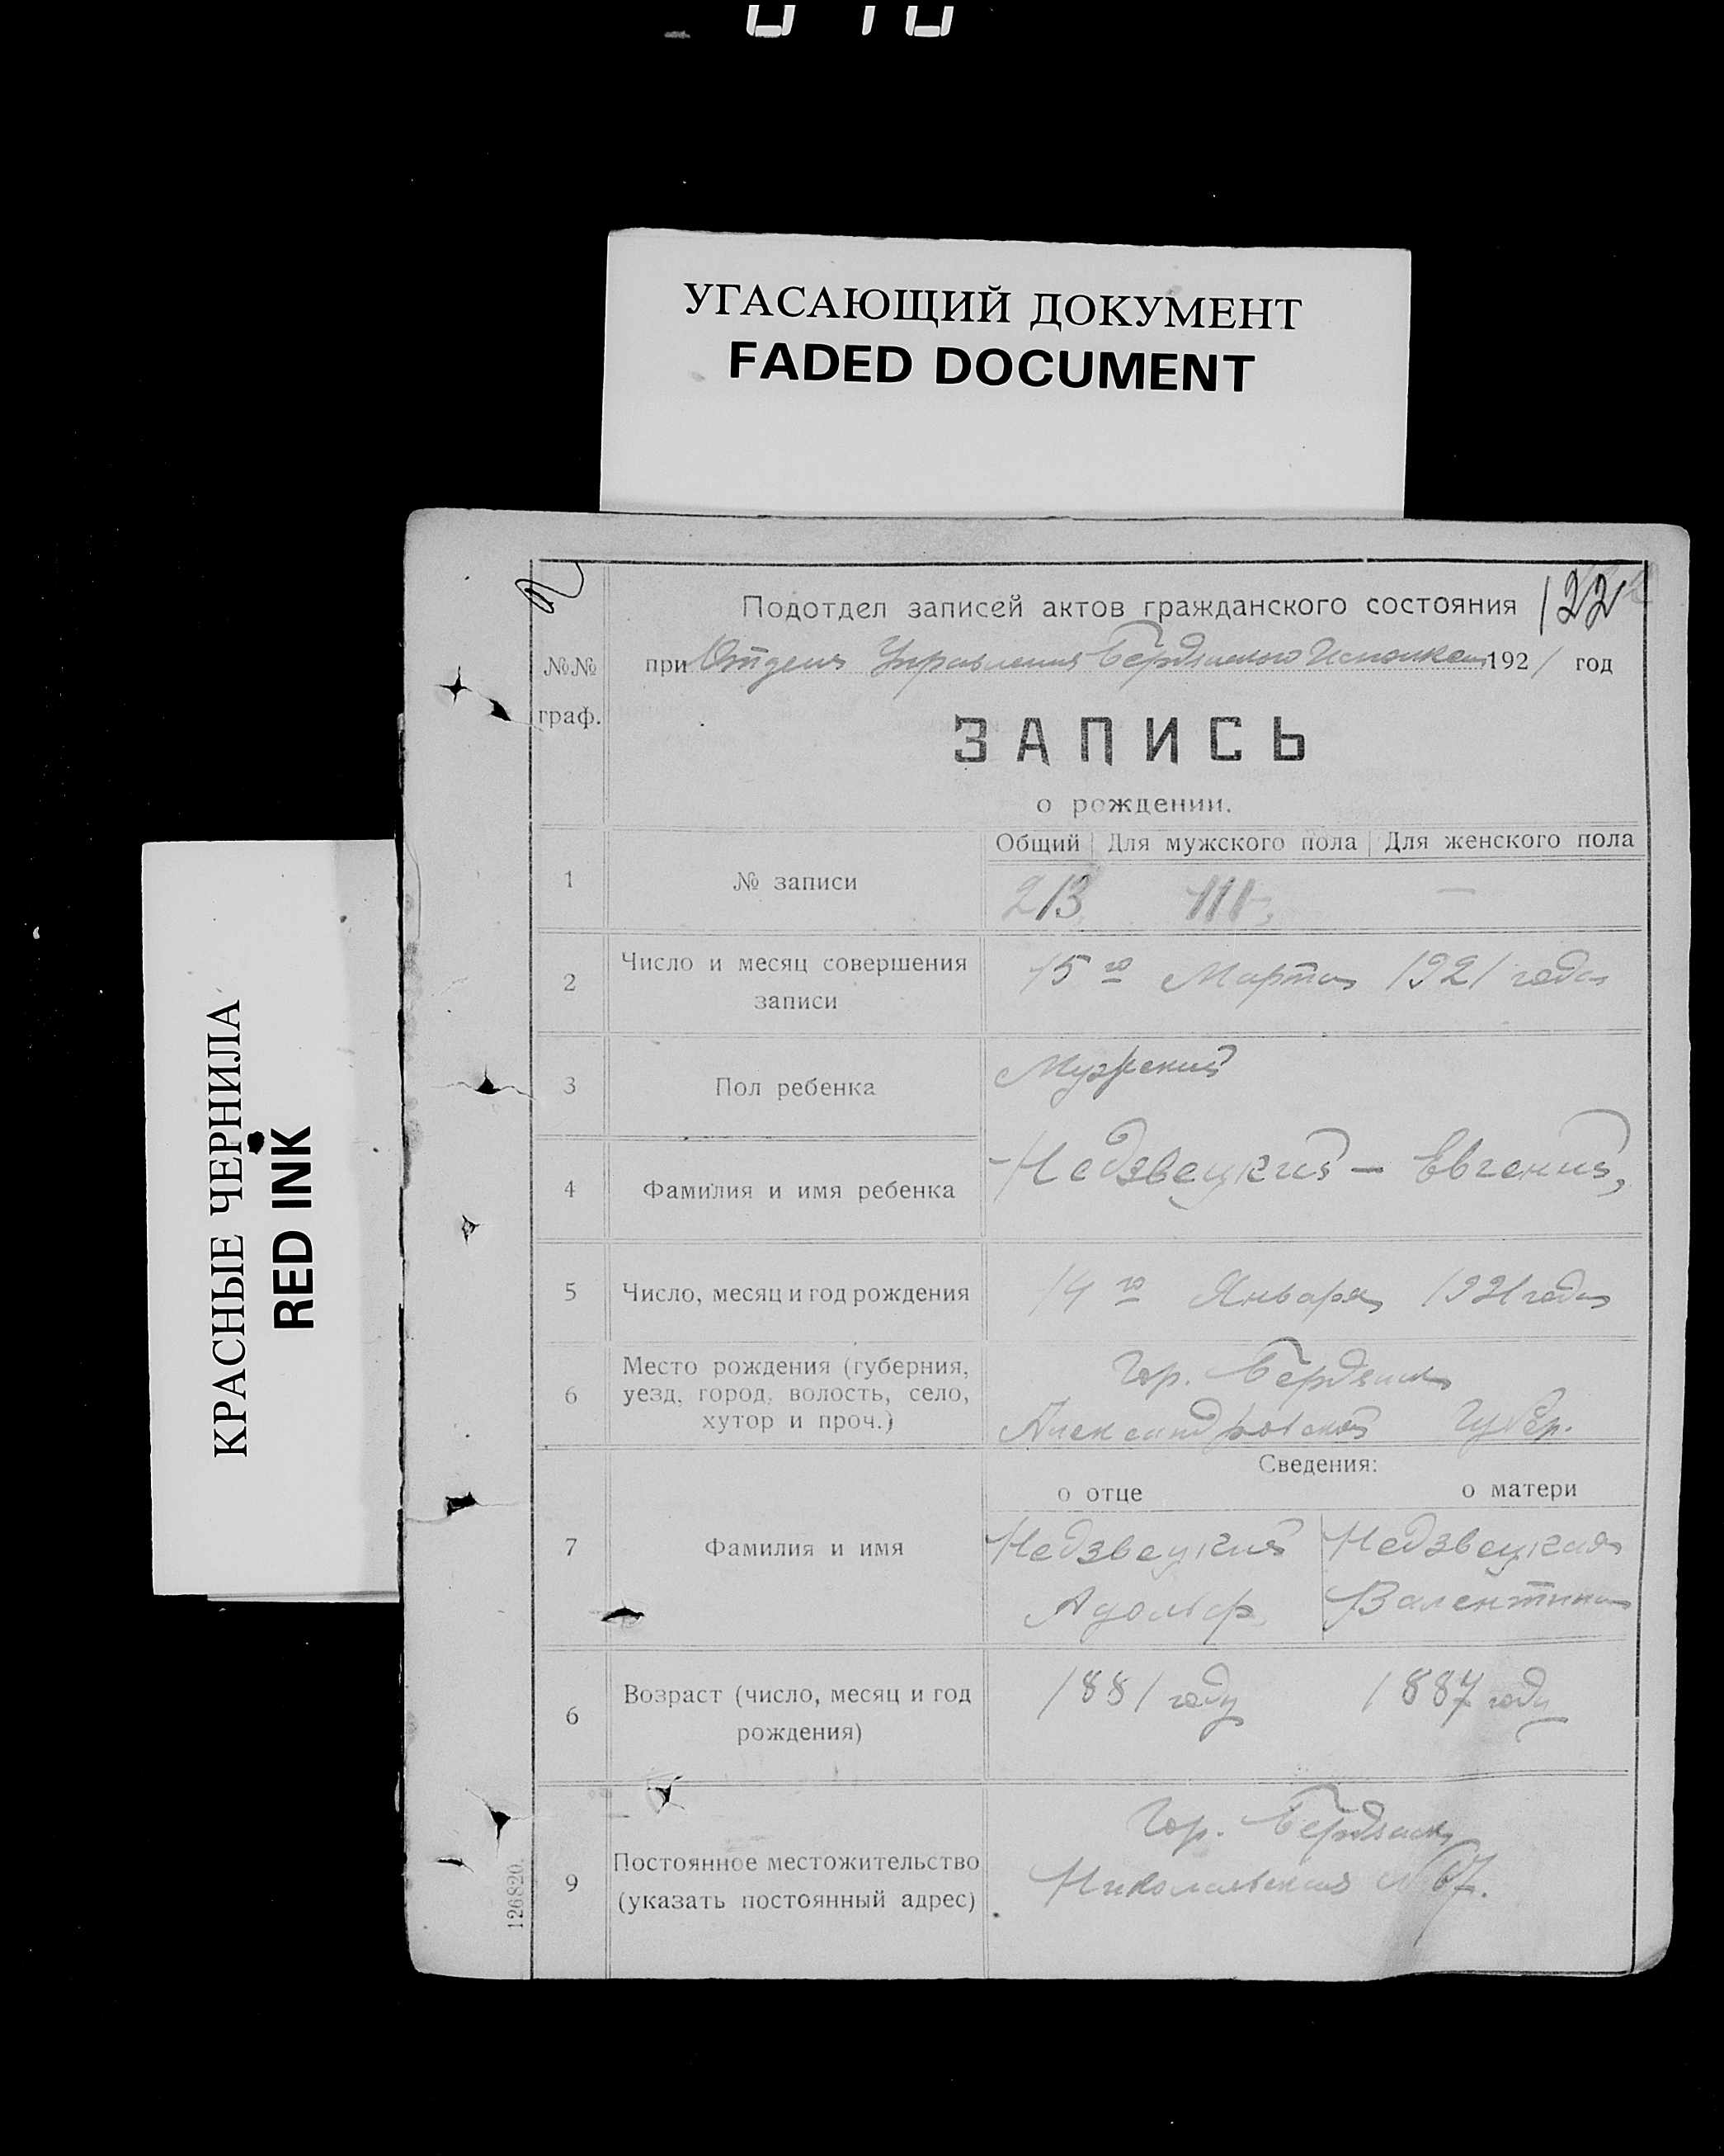 УГАСАЮЩИЙ ДОКУМЕНТ
FADED DOCUMENT
КРАСНЫЕ ЧЕРНИЛА
RED INK
122
Подотдел записей актов гражданского состояния
№№ граф.
при Отделе Управления Бердянского Исполкома 1921 год
ЗАПИСЬ
о рождении.
Общий Для мужского пола Для женского пола
1 № записи 213 111 —
2 Число и месяц совершения записи 15го Марта 1921 года
3 Пол ребенка Мужской
4 Фамилия и имя ребенка Недзвецкий — Евгений,
5 Число, месяц и год рождения 14го Января 1921 года
6 Место рождения (губерния, уезд, город, волость, село, хутор и проч.) Гор. Бердянск
Александровской Губер.
Сведения:
о отце о матери
7 Фамилия и имя Недзвецкий Недзвецкая
Адольф Валентина
6 Возраст (число, месяц и год рождения) 1881 году 1887 году
9 Постоянное местожительство (указать постоянный адрес) Гор. Бердянск
Николаевская № 67.
126820.